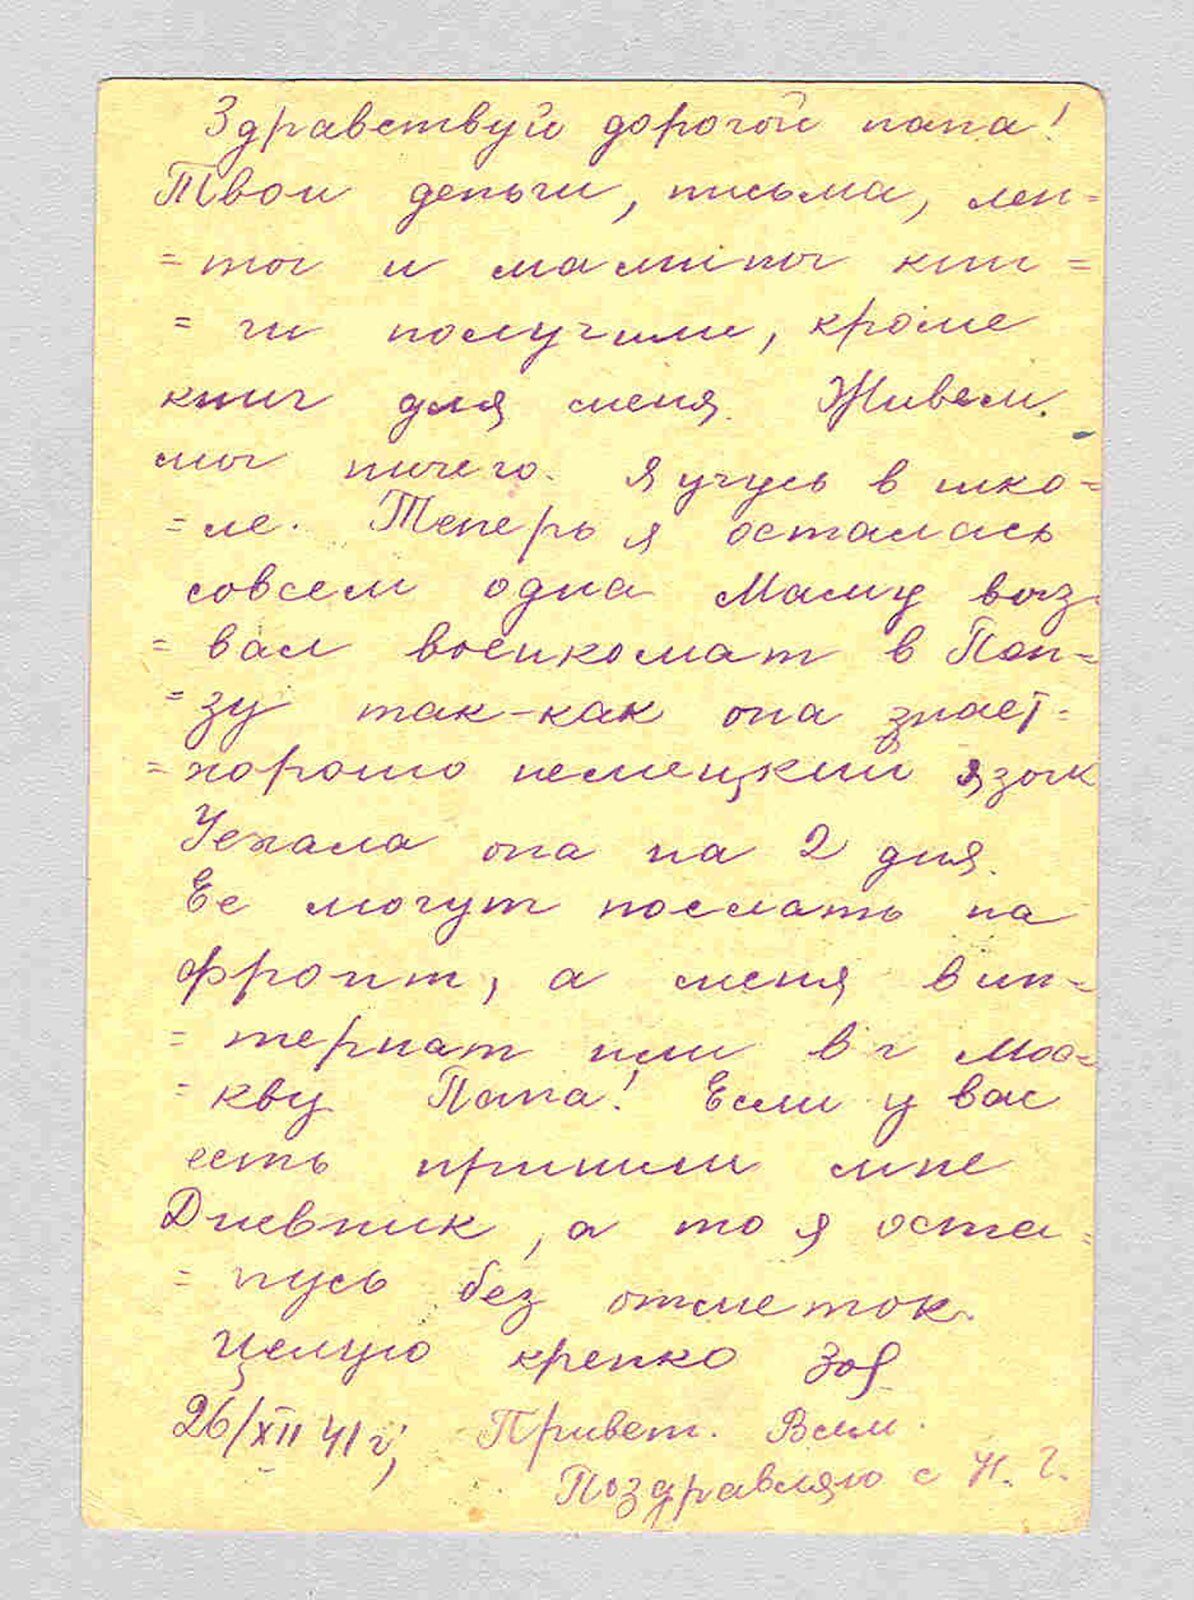 Здравствуй дорогой папа!
Твои деньги, письма, лен=
=ты и мамины кни=
=ги получили, кроме
книг для меня. Живем
мы ничего. Я учусь в шко=
=ле. Теперь я осталась
совсем одна Маму выз=
=вал военкомат в Пен=
=зу так-как она знает=
=хорошо немецкий язык
Уехала она на 2 дня.
Ее могут послать на
фронт, а меня в ин=
=тернат или в г Мос=
=кву Папа! Если у вас
есть пришли мне
Дневник, а то я оста=
=нусь без отметок.
Целую крепко Зоя
26/XII 41 г, Привет. Всем.
Поздравляю с Н. Г.